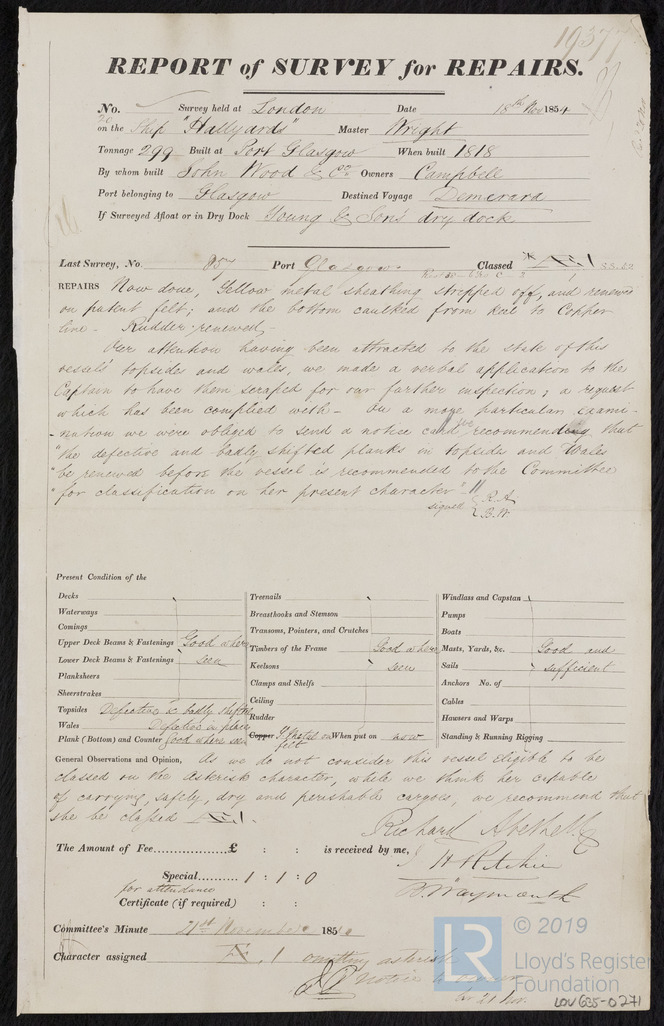 19377
REPORT of SURVEY for REPAIRS.
No. Survey held at London Date 18th Nov 1854
on the Ship "Hallyards" Master Wright
Tonnage 299 Built at Port Glasgow When built 1818
By whom built John Wood & Co Owners Campbell
Port belonging to Glasgow Destined Voyage Demerara
If Surveyed Afloat or in Dry Dock Young & Son's dry dock
Last Survey, No. 85 Port Glasgow Classed
REPAIRS Now done, Yellow metal sheathing stripped off, and renewed
on patent felt; and the bottom caulked from keel to Copper
line - Rudder renewed,-
Our attention having been attracted to the state of this
vessels' topsides and wales, we made a verbal application to the
Captain to have them scraped for our further inspection, a request
which has been complied with - On a more particular exami-
-nation we were obliged to send a notice card recommending that
"the defective and badly shifted planks in topsides and Wales
"be renewed before the vessel is recommended to the Committee
"for classification on her present character"
signed R.A.
B.W
Present Condition of the
Decks
Waterways
Comings
Upper Deck Beams & Fastenings Good where
Lower Deck Beams & Fastenings seen
Planksheers
Sheerstrakes
Topsides Defective & badly shifted
Wales Defective in places
Plank (Bottom) and Counter Good where seen
Treenails
Breasthooks and Stemson
Transoms, Pointers, and Crutches
Timbers of the Frame Good where
Keelsons seen
Clamps and Shelfs
Ceiling
Rudder
Copper Y Metal on When put on now
felt
Windlass and Capstan
Pumps
Boats
Masts, Yards, &c. Good and
Sails sufficient
Anchors No. of
Cables
Hawsers and Warps
Standing & Running Rigging
General Observations and Opinion, As we do not consider this vessel eligible to be
classed on the Asterisk character, while we think her capable
of carrying, safely, dry and perishable cargoes, we recommend that
she be classed Æ1.
The Amount of Fee £ : : is received by me,
Richard Abethell
J H Ritchie
B. Waymouth
Special 1 : 1 : 0
for attendance
Certificate (if required) : :
Committee's Minute 21st November 1854
Character assigned Æ.1 omitting asterisk
Notice to
21 Nov.
LR
© 2019
Lloyd's Register
Foundation
LON635-0271